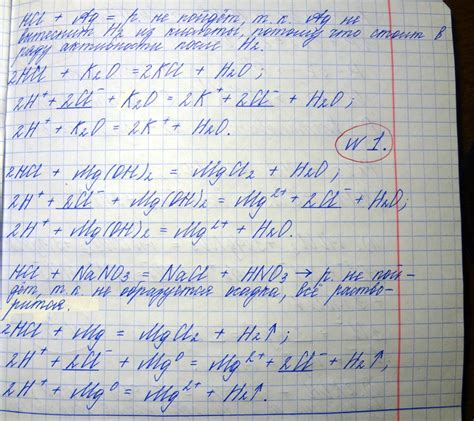 HCl + Ag = р. не пойдёт, т.к. Ag не
вытеснит H₂ из кислоты, потому что стоит в
ряду активности после H₂.
2HCl + K₂O = 2KCl + H₂O;
2H⁺ + 2Cl⁻ + K₂O = 2K⁺ + 2Cl⁻ + H₂O;
2H⁺ + K₂O = 2K⁺ + H₂O.
№1.
2HCl + Mg(OH)₂ = MgCl₂ + H₂O;
2H⁺ + 2Cl⁻ + Mg(OH)₂ = Mg²⁺ + 2Cl⁻ + H₂O;
2H⁺ + Mg(OH)₂ = Mg²⁺ + H₂O.
HCl + NaNO₃ = NaCl + HNO₃ → р. не пой-
дёт, т.к. не образуется осадка, всё раство-
рится.
2HCl + Mg = MgCl₂ + H₂↑;
2H⁺ + 2Cl⁻ + Mg⁰ = Mg²⁺ + 2Cl⁻ + H₂↑;
2H⁺ + Mg⁰ = Mg²⁺ + H₂↑.